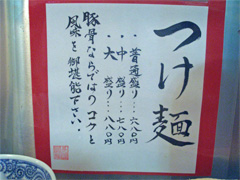 つけ麺
・普通盛り…六八〇円
・中盛り…七八〇円
・大盛り…八八〇円
豚骨ならではのコクと
風味を御堪能下さい。